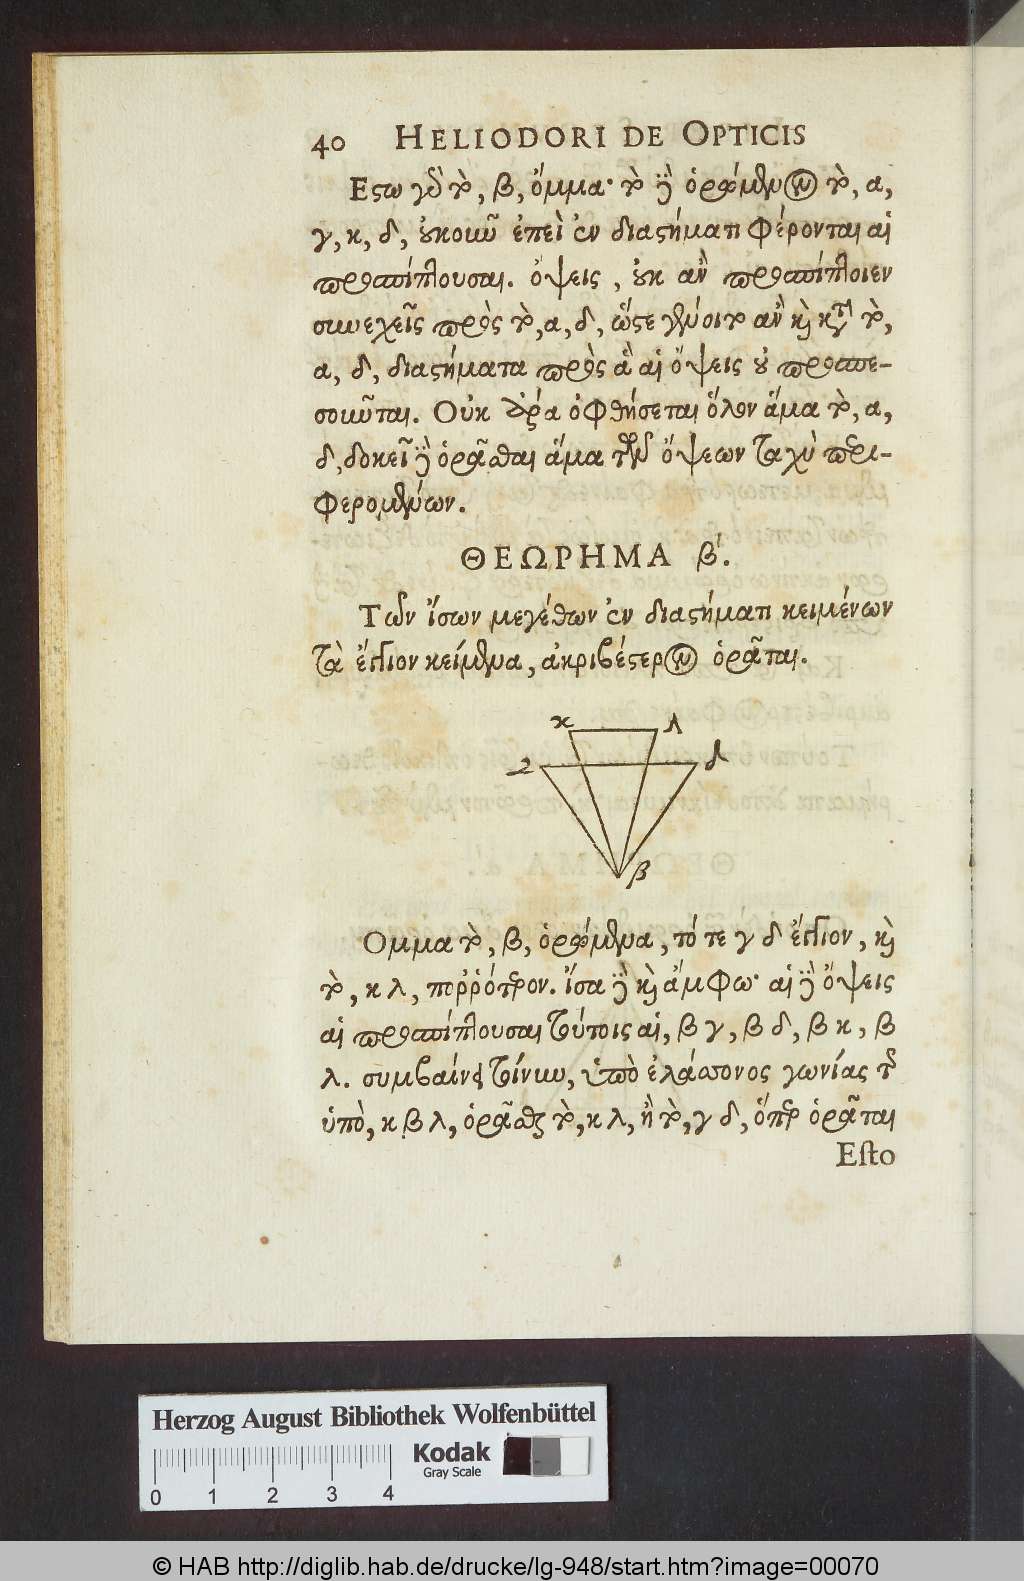 40 HELIODORI DE OPTICIS
Εςω γδ τὸ, β, ὄμμα· τὸ ἢ ὁρώμενον τὸ, α,
γ, κ, δ, ȣκοιῶ ἐπεὶ ἐν διαςήματι φέρονται αἱ
προσπίπτουσαι. ὄψεις, ȣκ ἂν προσπίπτοιεν
σιωεχεῖς πρὸς τὸ, α, δ, ὥςε γένοιτο ἂν κὶ κτ τὸ,
α, δ, διαςήματα πρὸς ἃ αἱ ὄψεις ȣ προσπε-
σοιῶται. Οὐκ ἄρα ὀφθήσεται ὅλον ἅμα τὸ, α,
δ, δοκεῖ ἢ ὁρᾶσθαι ἅμα τῶν ὄψεων ταχὺ περι-
φερομένων.
ΘΕΩΡΗΜΑ β΄.
Τῶν ἴσων μεγέθων ἐν διαςήματι κειμένων
τὰ ἔγγιον κείμενα, ἀκριβέςερον ὁρᾶται.
κ λ
γ δ
β
Ομμα τὸ, β, ὁρώμενα, τό τε γ δ ἔγγιον, κὶ
τὸ, κ λ, πορῤότερον. ἴσα ἢ κὶ ἄμφω· αἱ ἢ ὄψεις
αἱ προσπίπτουσαι τύτοις αἱ, β γ, β δ, β κ, β
λ. συμβαίνει τίνιω, ὑπὸ ἐλάσσονος γωνίας τ
ὑπὸ, κ β λ, ὁρᾶσθς τὸ, κ λ, ἢ τὸ, γ δ, ὅπερ ὁρᾶται
Eſto
Herzog August Bibliothek Wolfenbüttel
Kodak
Gray Scale
0 1 2 3 4
© HAB http://diglib.hab.de/drucke/lg-948/start.htm?image=00070